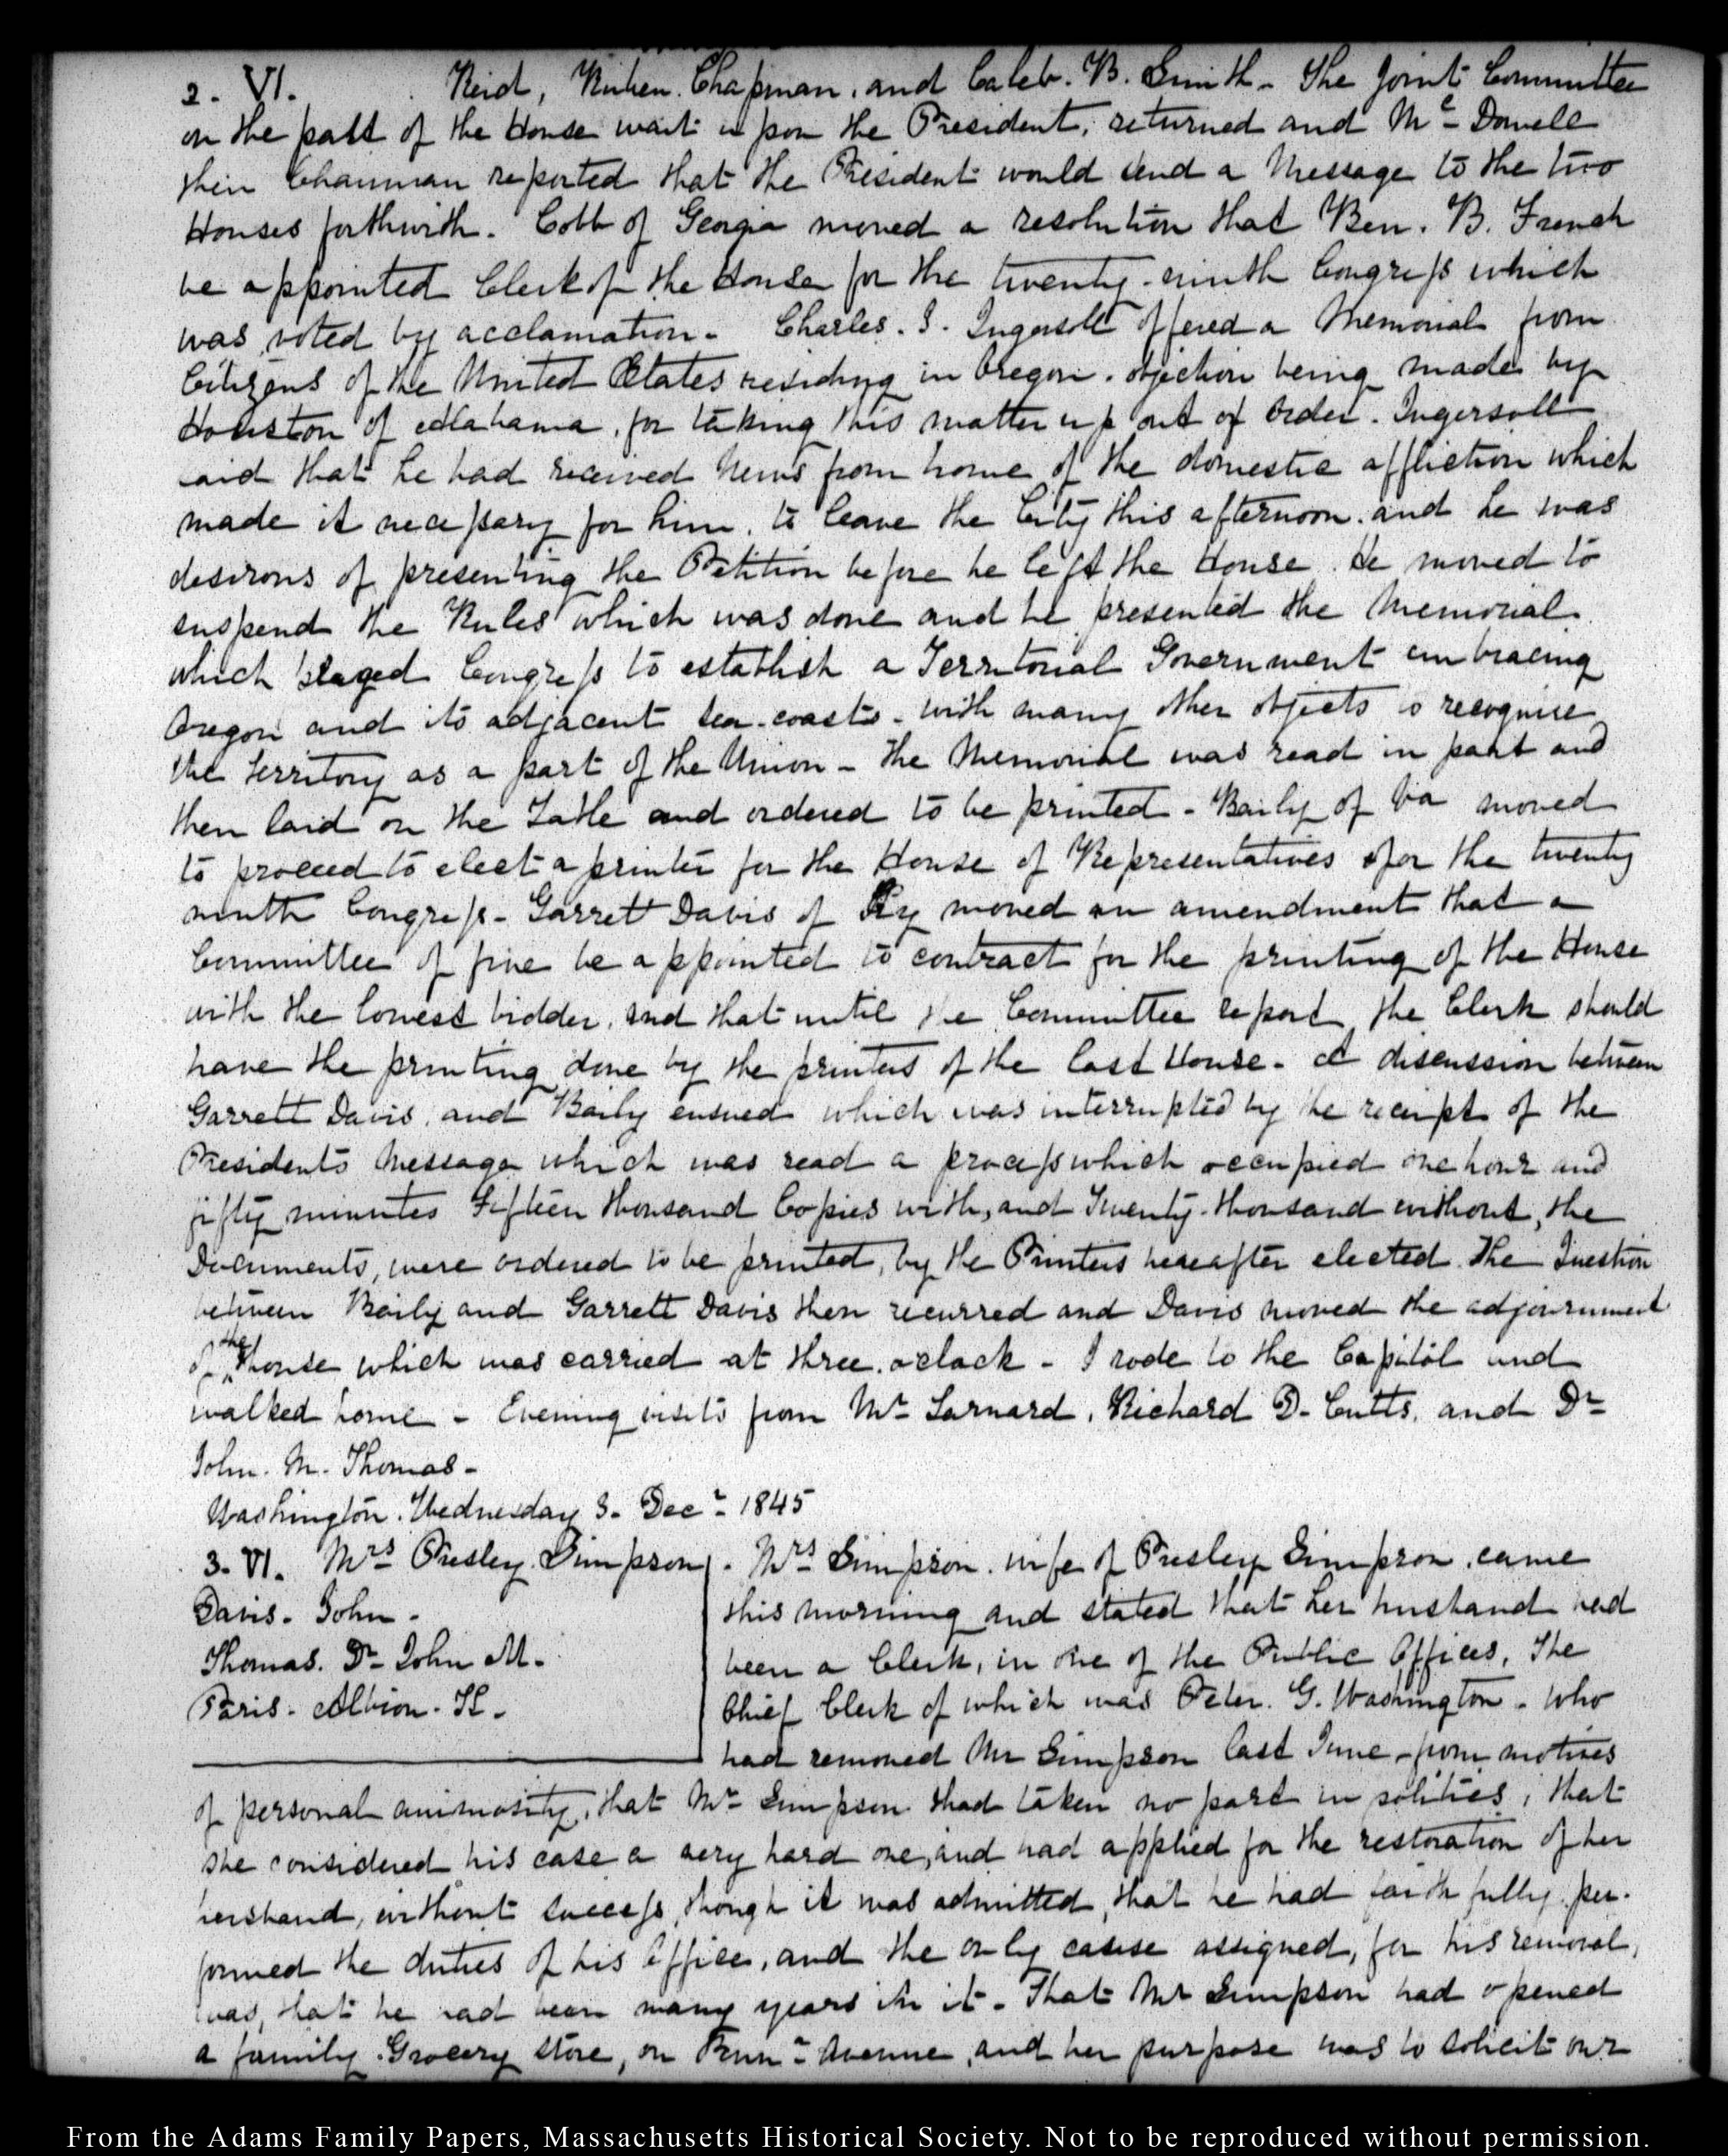 2. VI. Reid, Reuben. Chapman, and Caleb. B. Smith - The joint Committee
on the part of the House wait upon the President, returned and Mc Dowell
their Chairman reported that the President would send a Message to the two
Houses forthwith. Cobb of Georgia moved a resolution that Ben. B. French
be appointed Clerk of the House for the twenty-ninth Congress which
was voted by acclamation - Charles. J. Ingersoll offered a Memorial from
Citizens of the United States residing in Oregon. objection being made by
Houston of Alabama, for taking this matter up out of order. Ingersoll
said that he had received News from home of the domestic affliction which
made it necessary for him, to leave the City this afternoon. and he was
desirous of presenting the Petition before he left the House. He moved to
suspend the Rules which was done and he presented the Memorial
which Congress to establish a Territorial Government embracing
Oregon and its adjacent sea-coasts - with many other objects to recognise
the Territory as a part of the Union - The Memorial was read in part and
then laid on the Table and ordered to be printed - Baily of Va moved
to proceed to elect a printer for the House of Representatives for the twenty
ninth Congress - Garrett Davis of Ky moved an amendment that a
Committee of five be appointed to contract for the printing of the House
with the lowest bidder, and that until the Committee report the Clerk should
have the printing done by the printers of the last House - A discussion between
Garrett Davis, and Baily ensued which was interrupted by the receipt of the
Presidents Message which was read a process which occupied one hour and
fifty minutes Fifteen thousand Copies with, and Twenty-thousand without, the
Documents, were ordered to be printed, by the Printers hereafter elected. The Question
between Baily and Garrett Davis then recurred and Davis moved the adjournment
of the House which was carried at three. oclock - I rode to the Capitol and
walked home - Evening visits from Mr Barnard, Richard D. Cutts, and Dr
John. M. Thomas -
Washington. Wednesday 3. Decr 1845
3. VI. Mrs Presley Simpson
Davis. John -
Thomas. Dr John M.
Paris. Albion. K.
Mrs Simpson. wife of Presley Simpson, came
this morning and stated that her husband had
been a Clerk, in one of the Public Offices, The
Chief Clerk of which was Peter. G. Washington - who
had removed Mr Simpson last June - from motives
of personal animosity, that Mr Simpson had taken no part in politics, that
she considered his case a very hard one, and had applied for the restoration of her
husband, without success, though it was admitted, that he had faithfully per-
formed the duties of his Office, and the only cause assigned, for his removal,
was, that he had been many years in it - That Mr Simpson had opened
a family Grocery store, on Penna Avenue, and her purpose was to solicit our
From the Adams Family Papers, Massachusetts Historical Society. Not to be reproduced without permission.